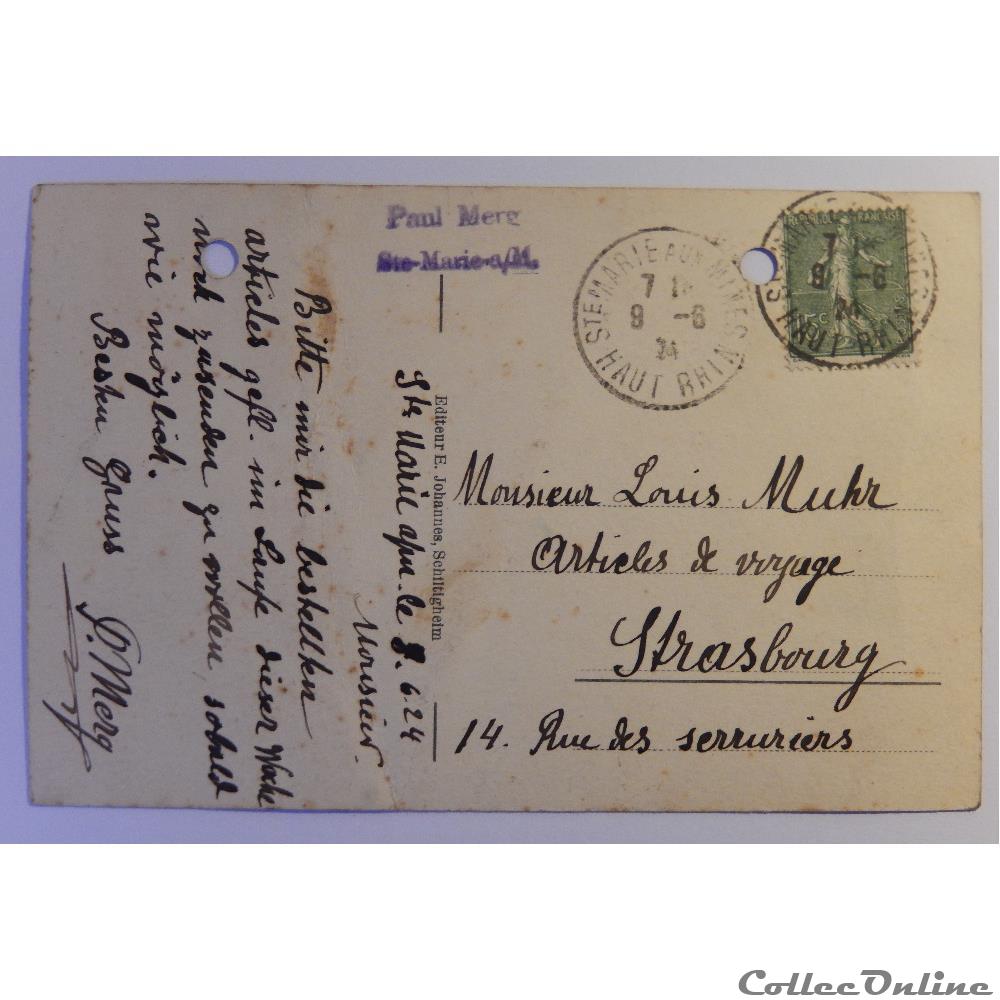 Paul Merg
Ste-Marie-a/M.
STE MARIE AUX MINES
7
9 -6
24
HAUT RHIN
REPUBLIQUE FRANÇAISE
15c
7
9 -6
24
HAUT RHIN
Editeur E. Johannes, Schiltigheim
Ste Marie a/m. le 8.6.24
Monsieur.
Bitte mir die bestellten
articles gefl. im Laufe dieser Woche
noch zusenden zu wollen, sobald
wie möglich.
Besten Gruss
P. Merg
Monsieur Louis Muhr
Articles de voyage
Strasbourg
14. Rue des serruriers
CollecOnline